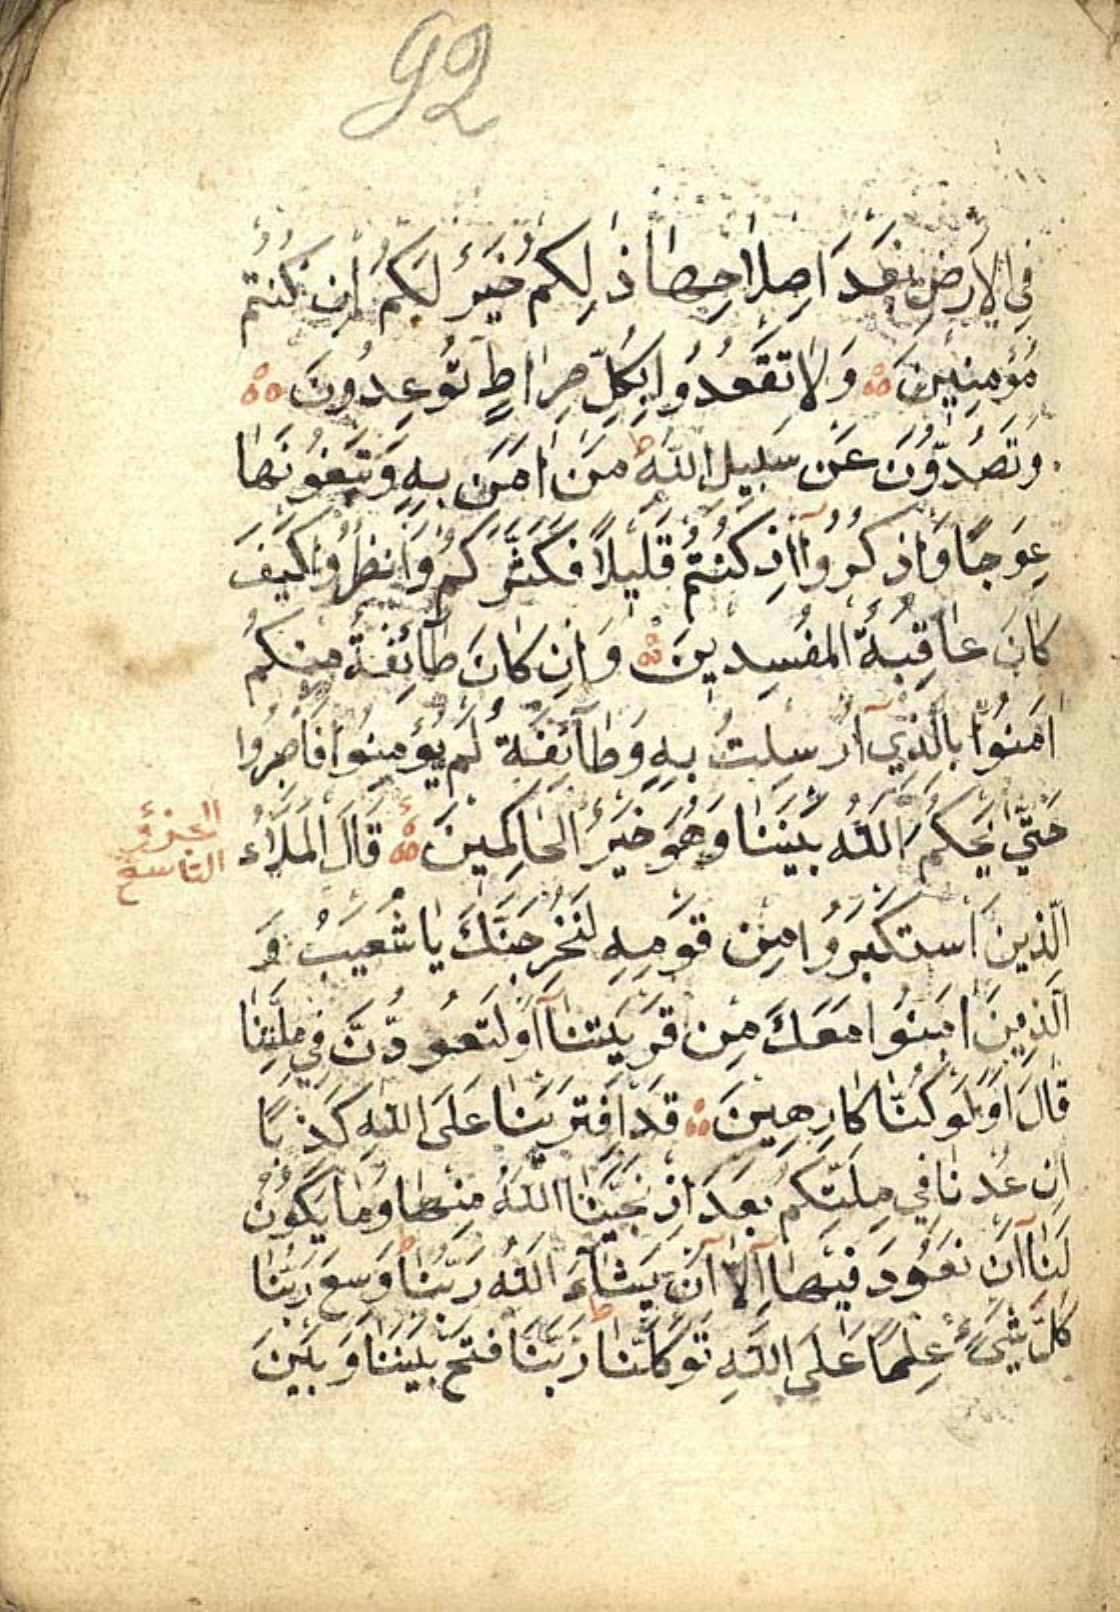 92
فِي الْاَرْضِ بَعْدَ اِصْلَاحِهَا ذٰلِكُمْ خَيْرٌ لَكُمْ اِنْ كُنْتُمْ
مُؤْمِنِينَ وَلَا تَقْعُدُوا بِكُلِّ صِرَاطٍ تُوعِدُونَ
وَتَصُدُّونَ عَنْ سَبِيلِ اللهِ ط مَنْ اٰمَنَ بِهِ وَتَبْغُونَهَا
عِوَجًا وَاذْكُرُوا اِذْ كُنْتُمْ قَلِيلًا فَكَثَّرَكُمْ وَانْظُرُوا كَيْفَ
كَانَ عَاقِبَةُ الْمُفْسِدِينَ وَاِنْ كَانَ طَائِفَةٌ مِنْكُمْ
اٰمَنُوا بِالَّذِي اُرْسِلْتُ بِهِ وَطَائِفَةٌ لَمْ يُؤْمِنُوا فَاصْبِرُوا
حَتّٰى يَحْكُمَ اللهُ بَيْنَنَا وَهُوَ خَيْرُ الْحَاكِمِينَ قَالَ الْمَلَاءُ
الجزؤ
التاسع
الَّذِينَ اسْتَكْبَرُوا مِنْ قَوْمِهِ لَنُخْرِجَنَّكَ يَا شُعَيْبُ وَ
الَّذِينَ اٰمَنُوا مَعَكَ مِنْ قَرْيَتِنَا اَوْ لَتَعُودُنَّ فِي مِلَّتِنَا
قَالَ اَوَلَوْ كُنَّا كَارِهِينَ قَدِ افْتَرَيْنَا عَلَى اللهِ كَذِبًا
اِنْ عُدْنَا فِي مِلَّتِكُمْ بَعْدَ اِذْ نَجّٰينَا اللهُ مِنْهَا وَمَا يَكُونُ
لَنَا اَنْ نَعُودَ فِيهَا اِلَّا اَنْ يَشَاءَ اللهُ رَبُّنَا ط وَسِعَ رَبُّنَا
كُلَّ شَيْءٍ عِلْمًا عَلَى اللهِ تَوَكَّلْنَا ط رَبَّنَا فْتَحْ بَيْنَنَا وَبَيْنَ